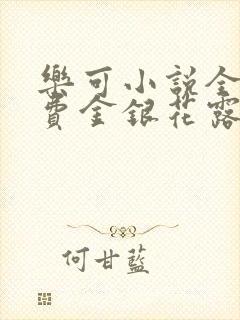 樂可小說全
費金銀花露
何甘藍